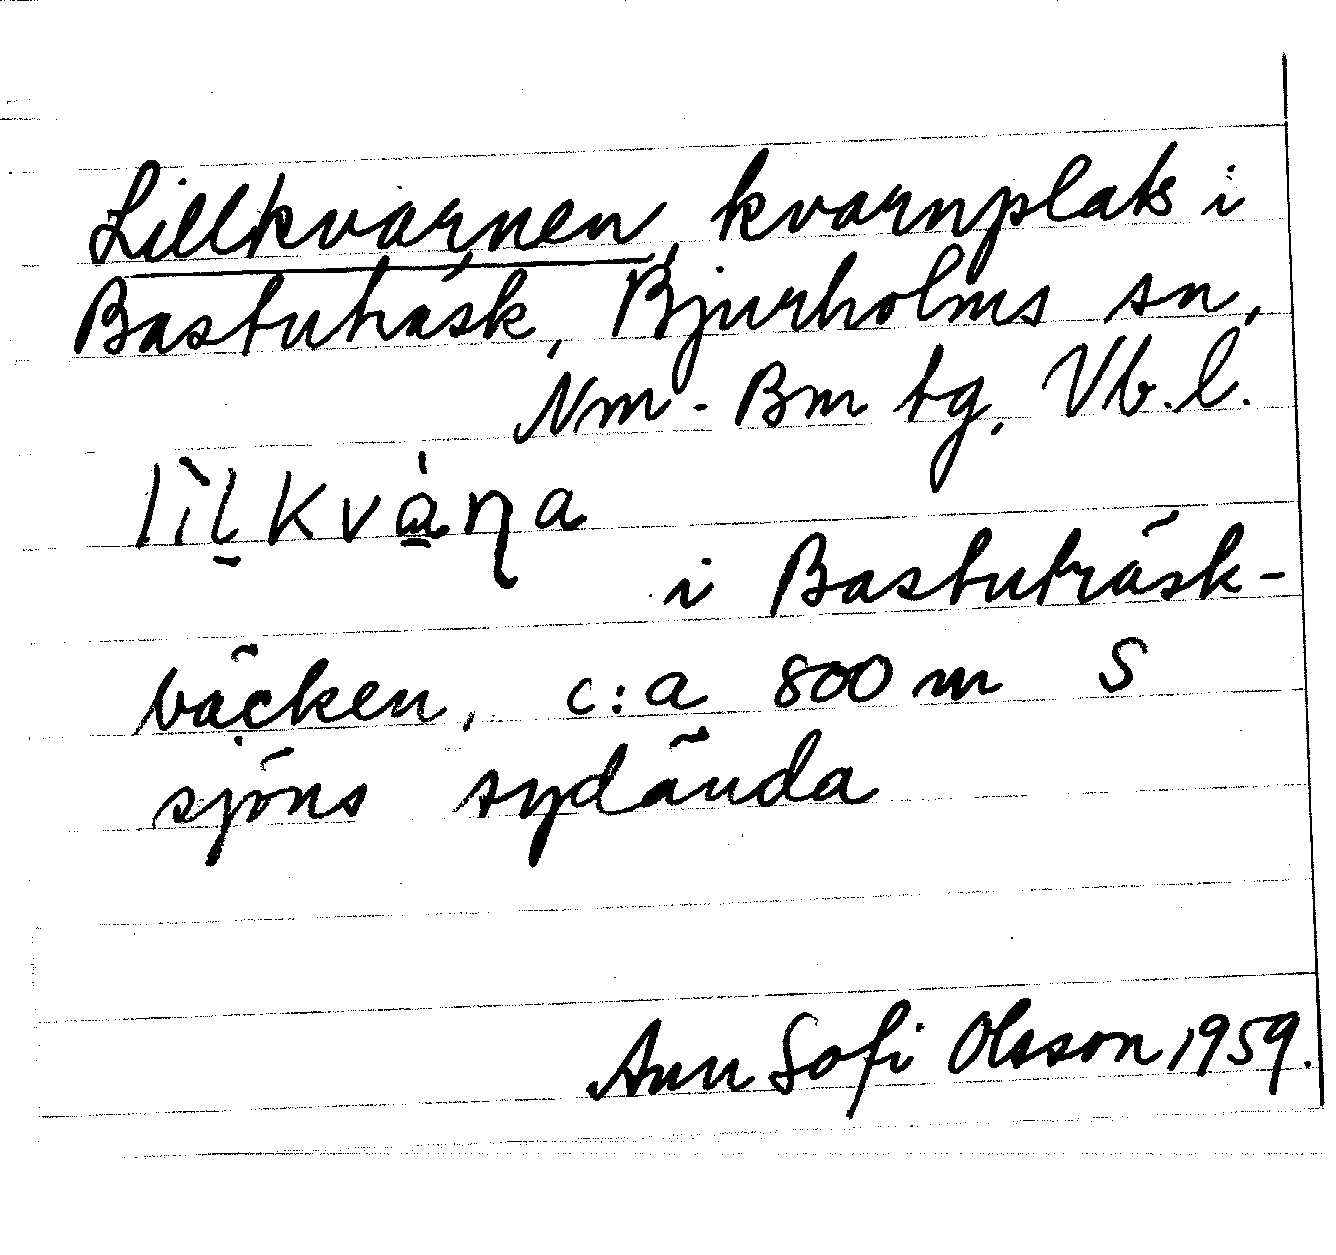 Lillkvarnen, kvarnplats i
Bastuträsk, Bjurholms sn,
Nm-Bm tg, Vb.l.
lìl̠kvà̠ɳa
i Bastuträsk-
bäcken, c:a 800 m S
sjöns sydända
Ann Sofi Olsson 1959.